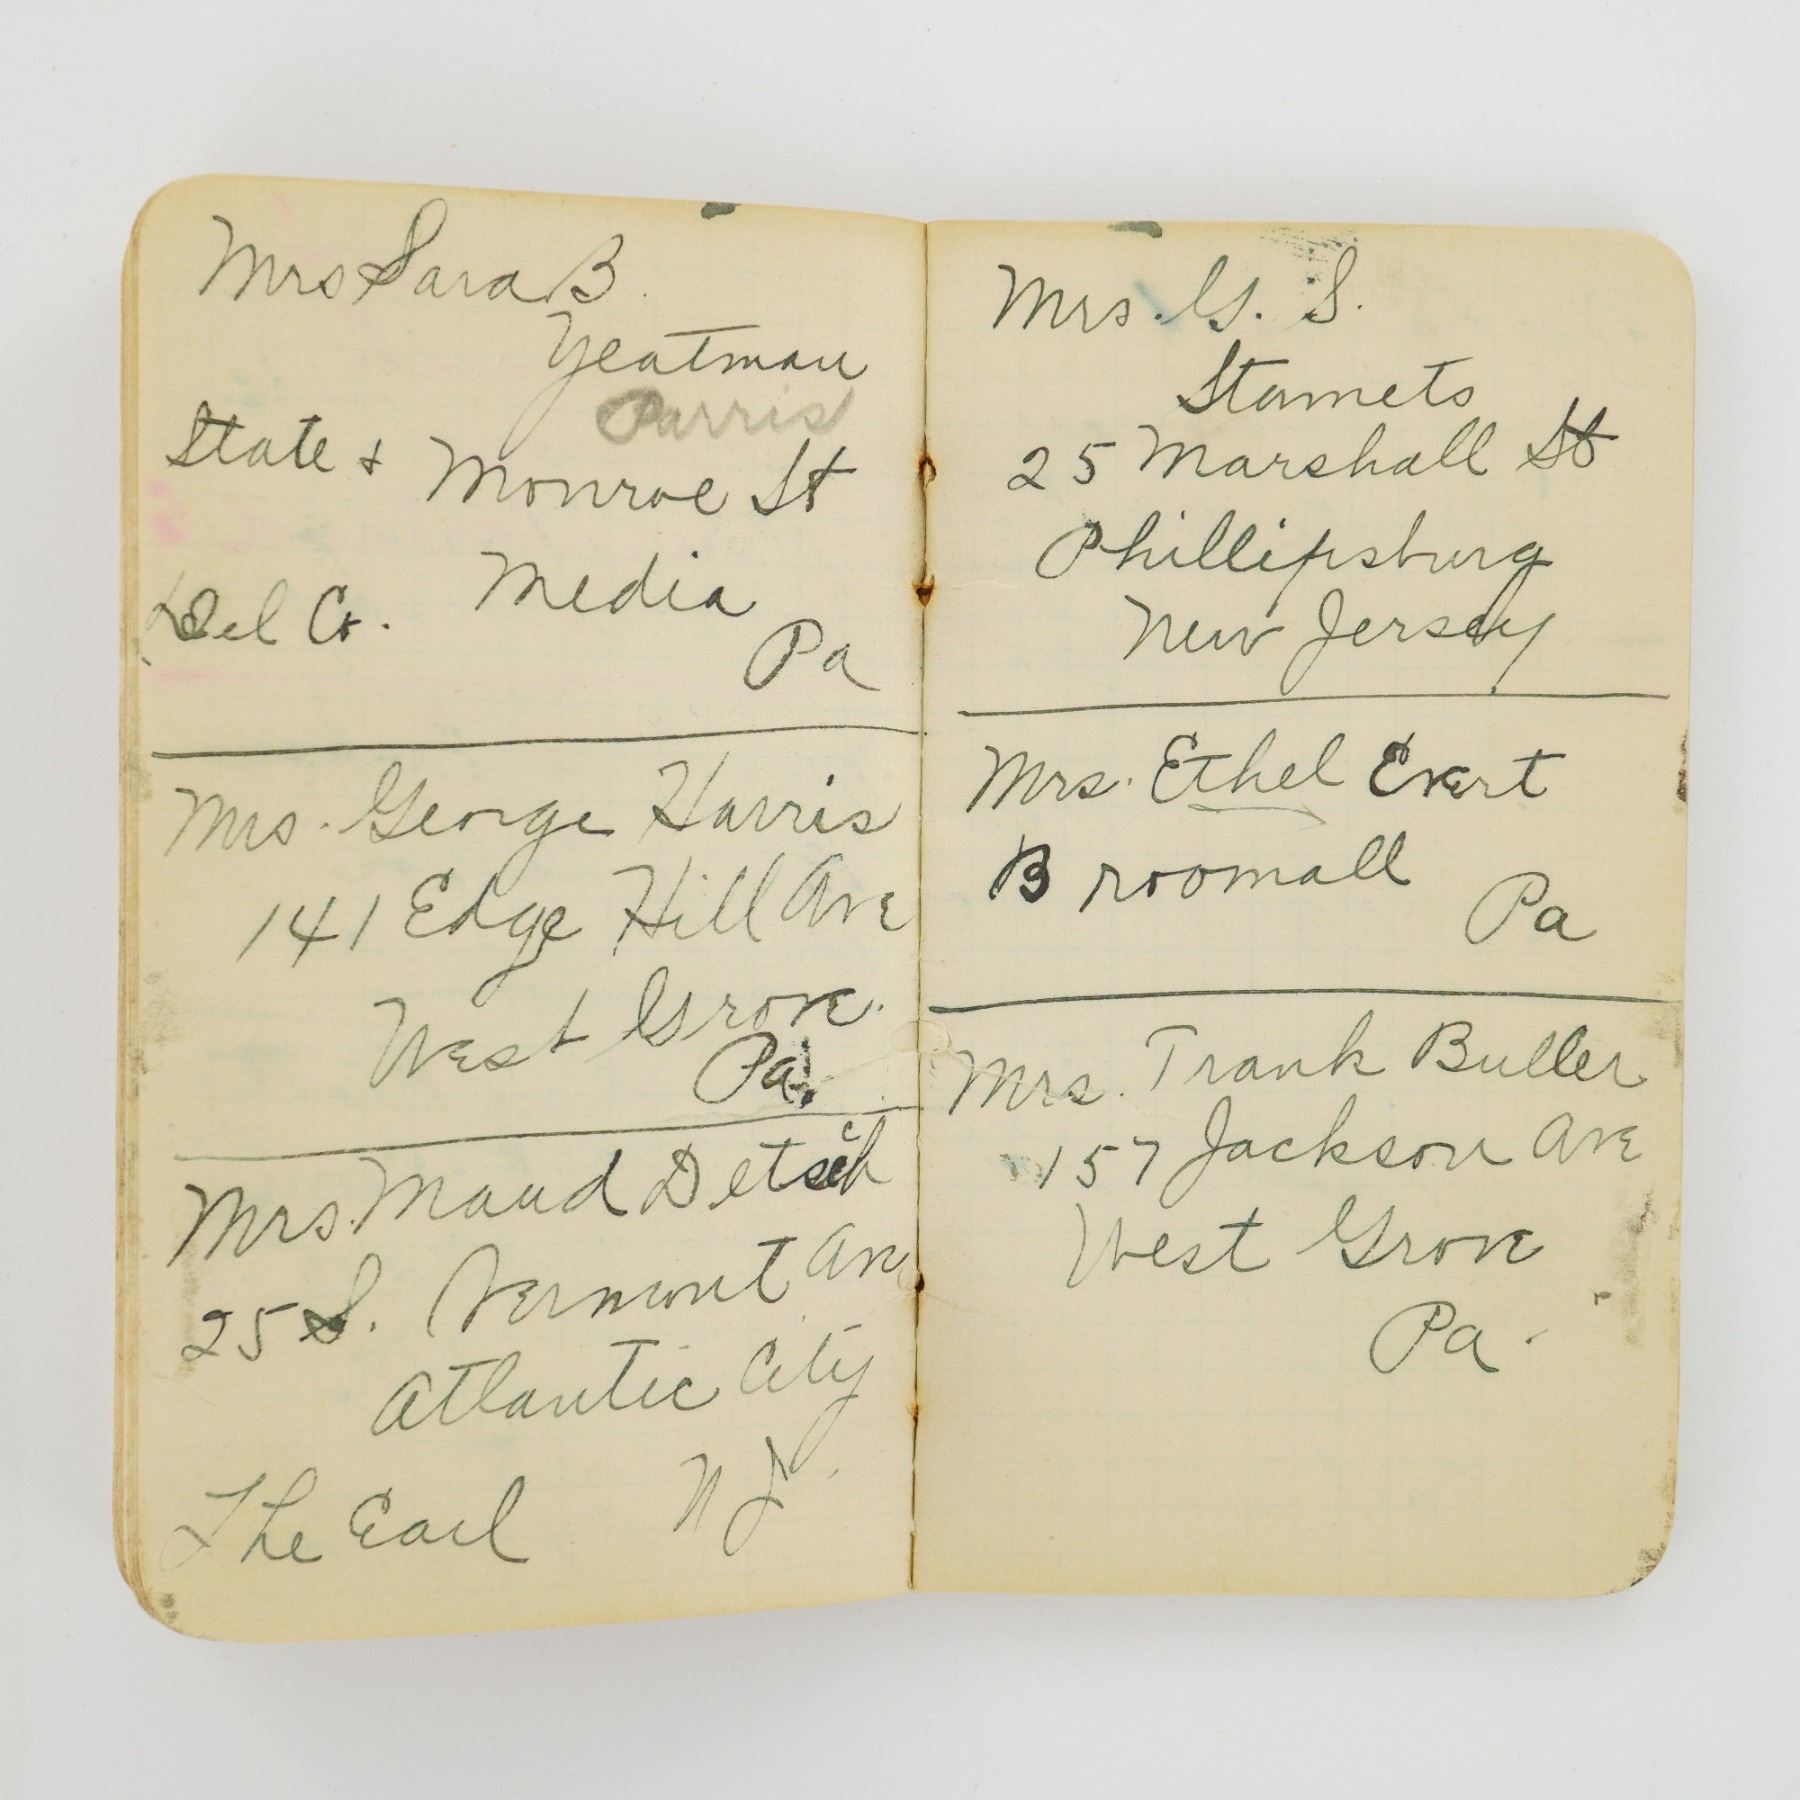 Mrs Sara B.
Yeatman
Parris
State & Monroe St
Media
Del Co.
Pa
Mrs. George Harris
141 Edge Hill Ave
West Grove.
Pa.
Mrs. Maud Detsch
25 S. Vermont Ave
Atlantic City
N J.
The Earl
Mrs. G. S.
Stamets
25 Marshall St
Phillipsburg
New Jersey
Mrs. Ethel Evert
Broomall
Pa
Mrs. Frank Butler
157 Jackson Ave
West Grove
Pa.